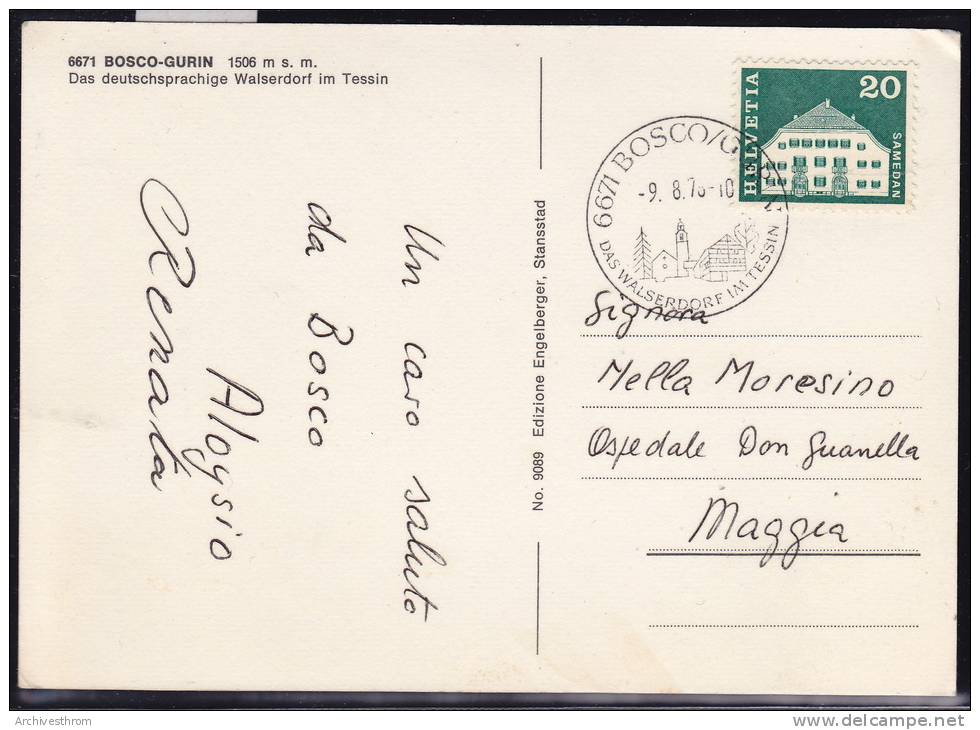 6671 BOSCO-GURIN 1506 m s. m.
Das deutschsprachige Walserdorf im Tessin
Un caro saluto
da Bosco
Aloysio
Renata
No. 9089 Edizione Engelberger, Stansstad
HELVETIA
20
SAMEDAN
6671 BOSCO/G
-9. 8.76-10
DAS WALSERDORF IM TESSIN
Signora
Nella Moresino
Ospedale Don Guanella
Maggia
Archivesthrom
www.delcampe.net